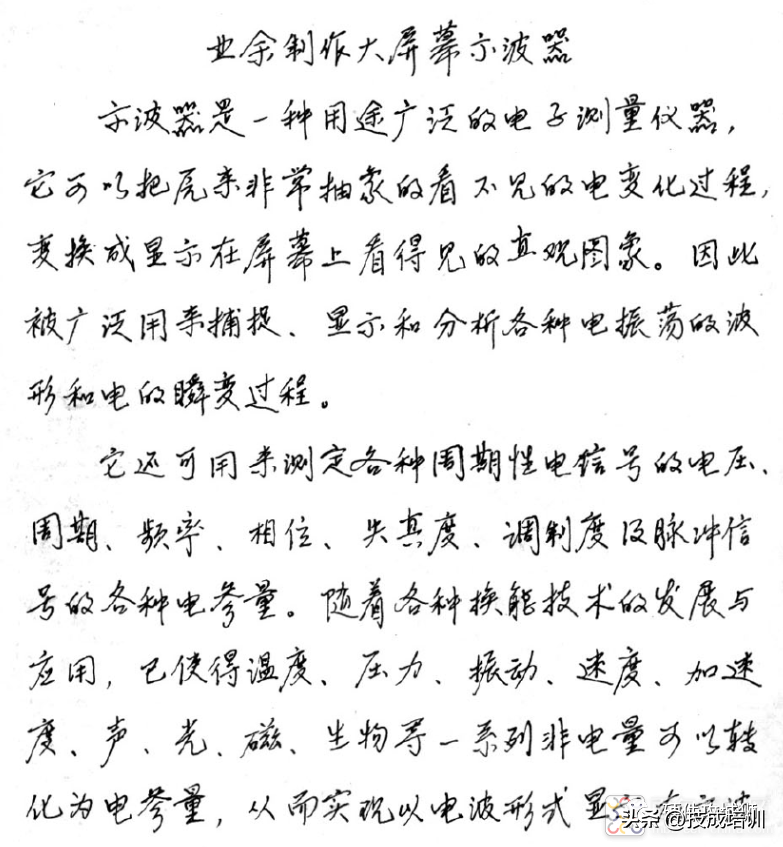 业余制作大屏幕示波器
示波器是一种用途广泛的电子测量仪器，
它可以把原来非常抽象的看不见的电变化过程，
变换成显示在屏幕上看得见的直观图象。因此
被广泛用来捕捉、显示和分析各种电振荡的波
形和电的瞬变过程。
它还可用来测定各种周期性电信号的电压、
周期、频率、相位、失真度、调制度及脉冲信
号的各种电参量。随着各种换能技术的发展与
应用，已使得温度、压力、振动、速度、加速
度、声、光、磁、生物等一系列非电量可以转
化为电参量，从而实现以电波形式显
头条 @技成培训